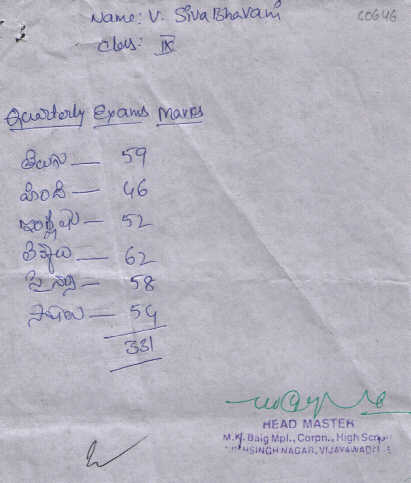 Name: V. Siva Bhavani
C0646
Class: IX
Quarterly Exams Marks
తెలుగు — 59
హింది — 46
ఇంగ్లీషు — 52
లెక్కలు — 62
సైన్సు — 58
సోషల్ — 54
331
HEAD MASTER
Baig Mpl., Corpn., High
SINGH NAGAR, VIJAYAWADA